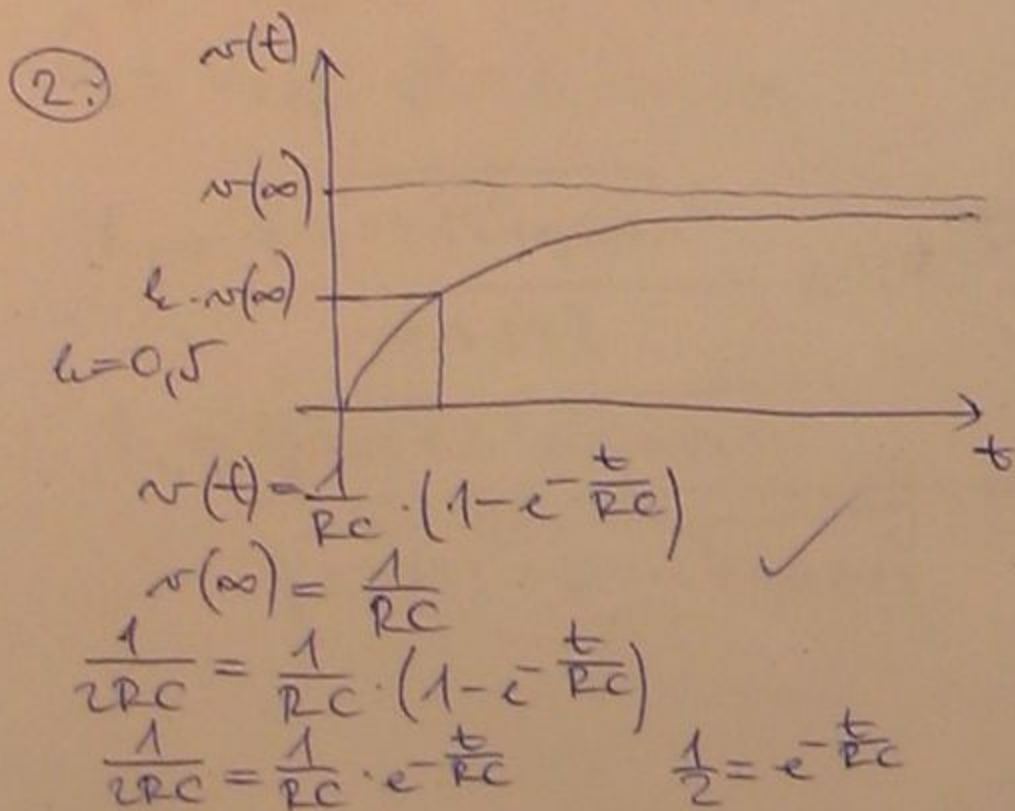 2.
v(t)
v(∞)
k·v(∞)
k=0,5
t
v(t)=1/RC·(1-e^(-t/RC))
v(∞)=1/RC
1/2RC=1/RC·(1-e^(-t/RC))
1/2RC=1/RC·e^(-t/RC) 1/2=e^(-t/RC)